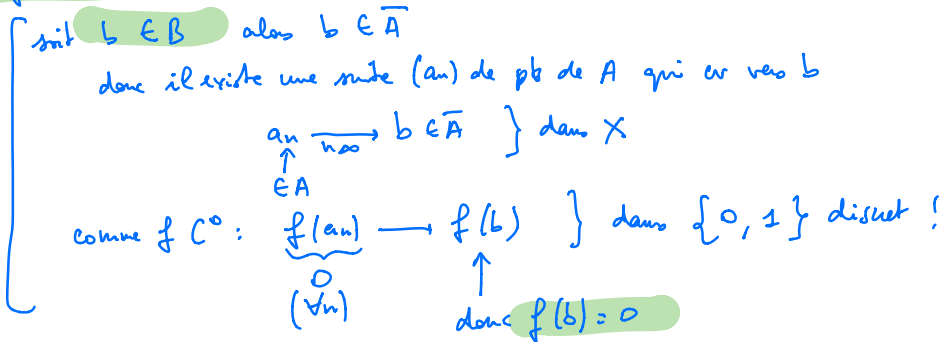 soit b ∈ B alors b ∈ A̅
donc il existe une suite (an) de pts de A qui cv vers b
an ⟶ b ∈ A̅ } dans X
n∞
↑
∈ A
comme f C⁰ : f(an) ⟶ f(b) } dans {0, 1} discret !
0 ↑
(∀n) donc f(b) = 0